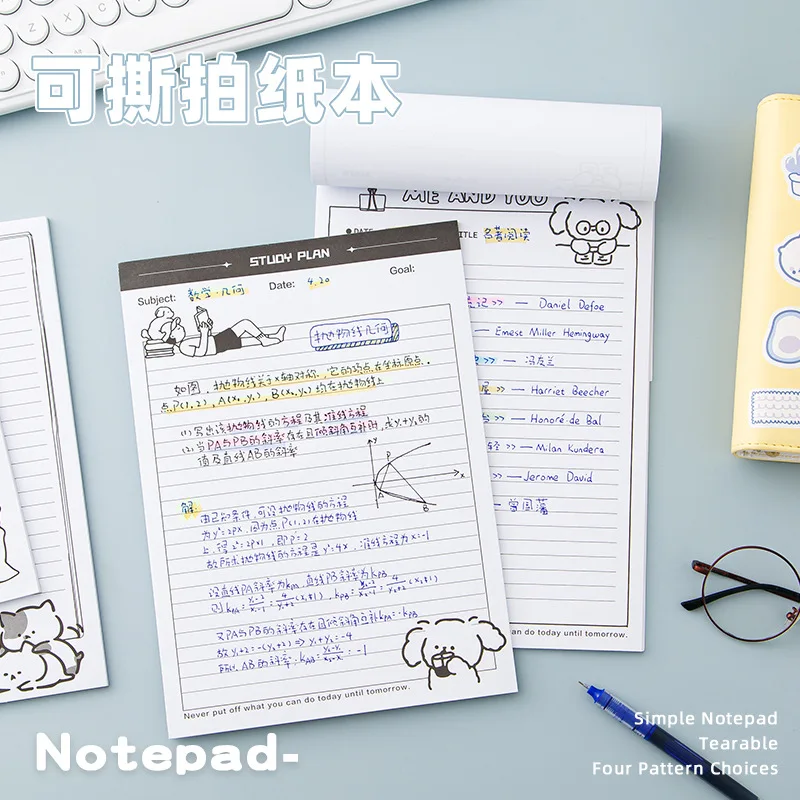 可撕拍纸本
ME AND YOU
DATE
TITLE 名著阅读
记>> — Daniel Defoe
— Ernest Miller Hemingway
>> — 冯友兰
屋>> — Harriet Beecher
>> — Honoré de Bal
轻>> — Milan Kundera
>> — Jerome David
— 曾国藩
can do today until tomorrow.
STUDY PLAN
Subject: 数学·几何 Date: 4.20 Goal:
抛物线几何
如图，抛物线关于x轴对称，它的顶点在坐标原点，
点P(1,2)，A(x₁,y₁)，B(x₂,y₂)均在抛物线上
(1)写出该抛物线的方程及其准线方程
(2)当PA与PB的斜率存在且倾斜角互补时，求y₁+y₂的
值及直线AB的斜率
y
P
x
A
B
解：
由已知条件，可设抛物线的方程
为y²=2px，因为点P(1,2)在抛物线
上，得2²=2p×1，即P=2
故所求抛物线的方程是y²=4x，准线方程为x=-1
设直线PA斜率为kPA，直线PB斜率为kPB
则kPA=(y₁-2)/(x₁-1)=4/(y₁+2)(x₁≠1)，kPB=(y₂-2)/(x₂-1)=4/(y₂+2)(x₂≠1)
又PA与PB的斜率存在且倾斜角互补kPA=-kPB
故y₁+2=-(y₂+2)⇒y₁+y₂=-4
所以AB的斜率：kAB=(y₂-y₁)/(x₂-x₁)=-1
Never put off what you can do today until tomorrow.
Notepad-
Simple Notepad
Tearable
Four Pattern Choices